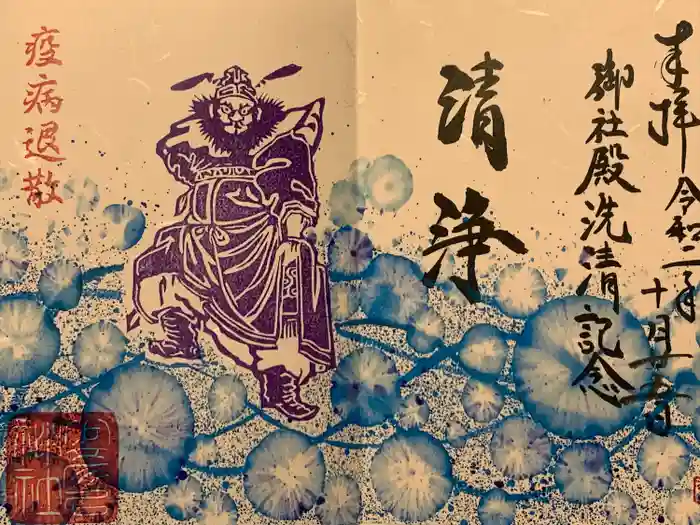 奉拝 令和二年十月廿日
御社殿洗清
記念
清浄
疫病退散
神社